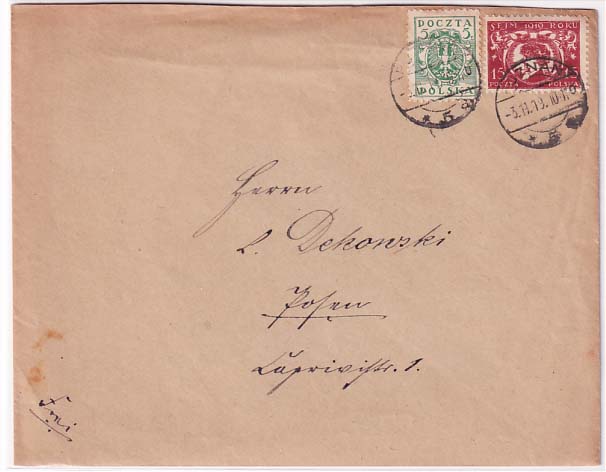 POCZTA
5 5
POLSKA
SEJM 1919 ROKU
15
POCZTA POLSKA
* 5
-3.11.19.10-11
* 5
Herrn
L. Dekowski
Posen
Caprivistr. 1.
Frei